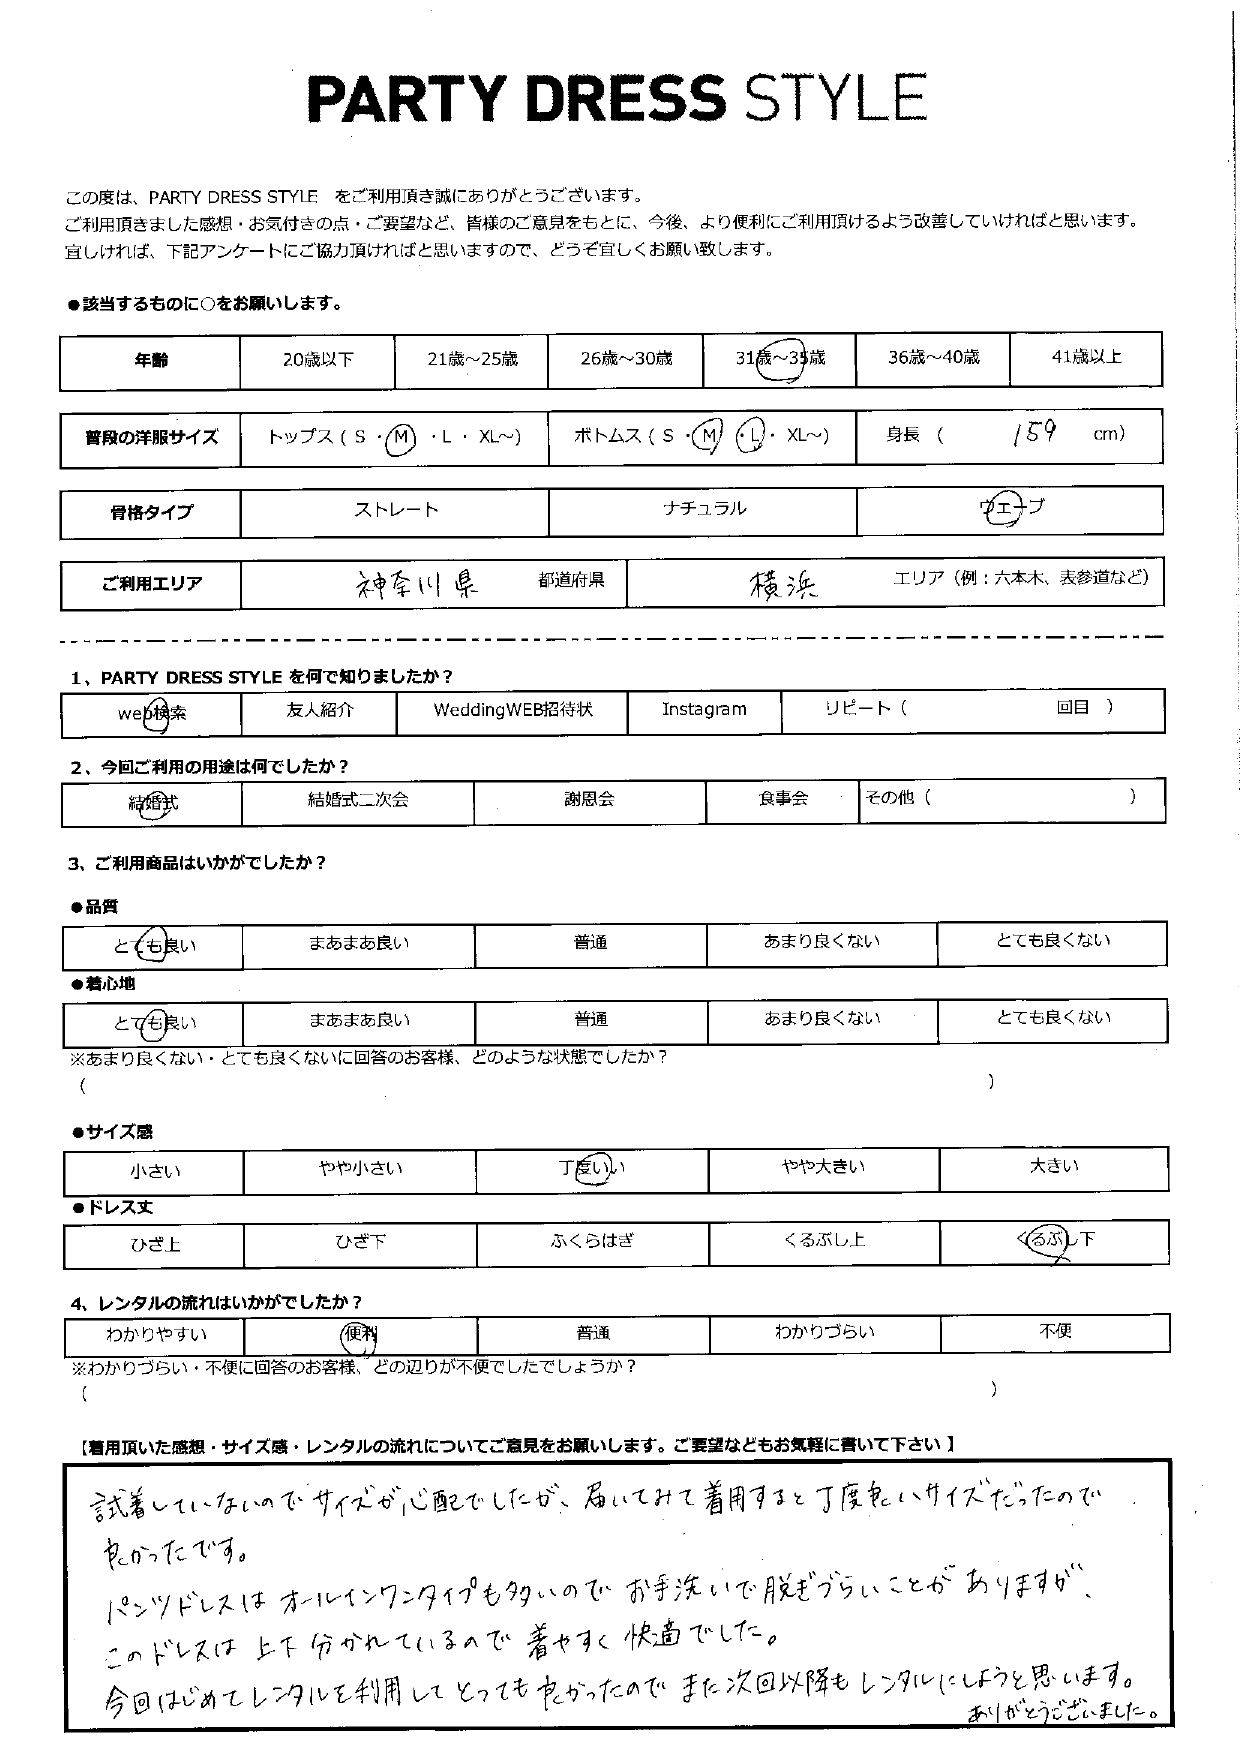 PARTY DRESS STYLE
この度は、PARTY DRESS STYLE をご利用頂き誠にありがとうございます。
ご利用頂きました感想・お気付きの点・ご要望など、皆様のご意見をもとに、今後、より便利にご利用頂けるよう改善していければと思います。
宜しければ、下記アンケートにご協力頂ければと思いますので、どうぞ宜しくお願い致します。
●該当するものに○をお願いします。
年齢 20歳以下 21歳～25歳 26歳～30歳 31歳～35歳 36歳～40歳 41歳以上
普段の洋服サイズ トップス ( S ・ M ・ L ・ XL～) ボトムス ( S ・ M ・ L ・ XL～) 身長 ( 159 cm)
骨格タイプ ストレート ナチュラル ウェーブ
ご利用エリア 神奈川県 都道府県 横浜 エリア（例：六本木、表参道など）
1、PARTY DRESS STYLE を何で知りましたか？
web検索 友人紹介 WeddingWEB招待状 Instagram リピート（ 回目 ）
2、今回ご利用の用途は何でしたか？
結婚式 結婚式二次会 謝恩会 食事会 その他（ ）
3、ご利用商品はいかがでしたか？
●品質
とても良い まあまあ良い 普通 あまり良くない とても良くない
●着心地
とても良い まあまあ良い 普通 あまり良くない とても良くない
※あまり良くない・とても良くないに回答のお客様、どのような状態でしたか？
( )
●サイズ感
小さい やや小さい 丁度いい やや大きい 大きい
●ドレス丈
ひざ上 ひざ下 ふくらはぎ くるぶし上 くるぶし下
4、レンタルの流れはいかがでしたか？
わかりやすい 便利 普通 わかりづらい 不便
※わかりづらい・不便に回答のお客様、どの辺りが不便でしたでしょうか？
( )
【着用頂いた感想・サイズ感・レンタルの流れについてご意見をお願いします。ご要望などもお気軽に書いて下さい 】
試着していないのでサイズが心配でしたが、届いてみて着用すると丁度良いサイズだったので
良かったです。
パンツドレスはオールインワンタイプも多いのでお手洗いで脱ぎづらいことがありますが、
このドレスは上下分かれているので着やすく快適でした。
今回はじめてレンタルを利用してとっても良かったのでまた次回以降もレンタルにしようと思います。
ありがとうございました。